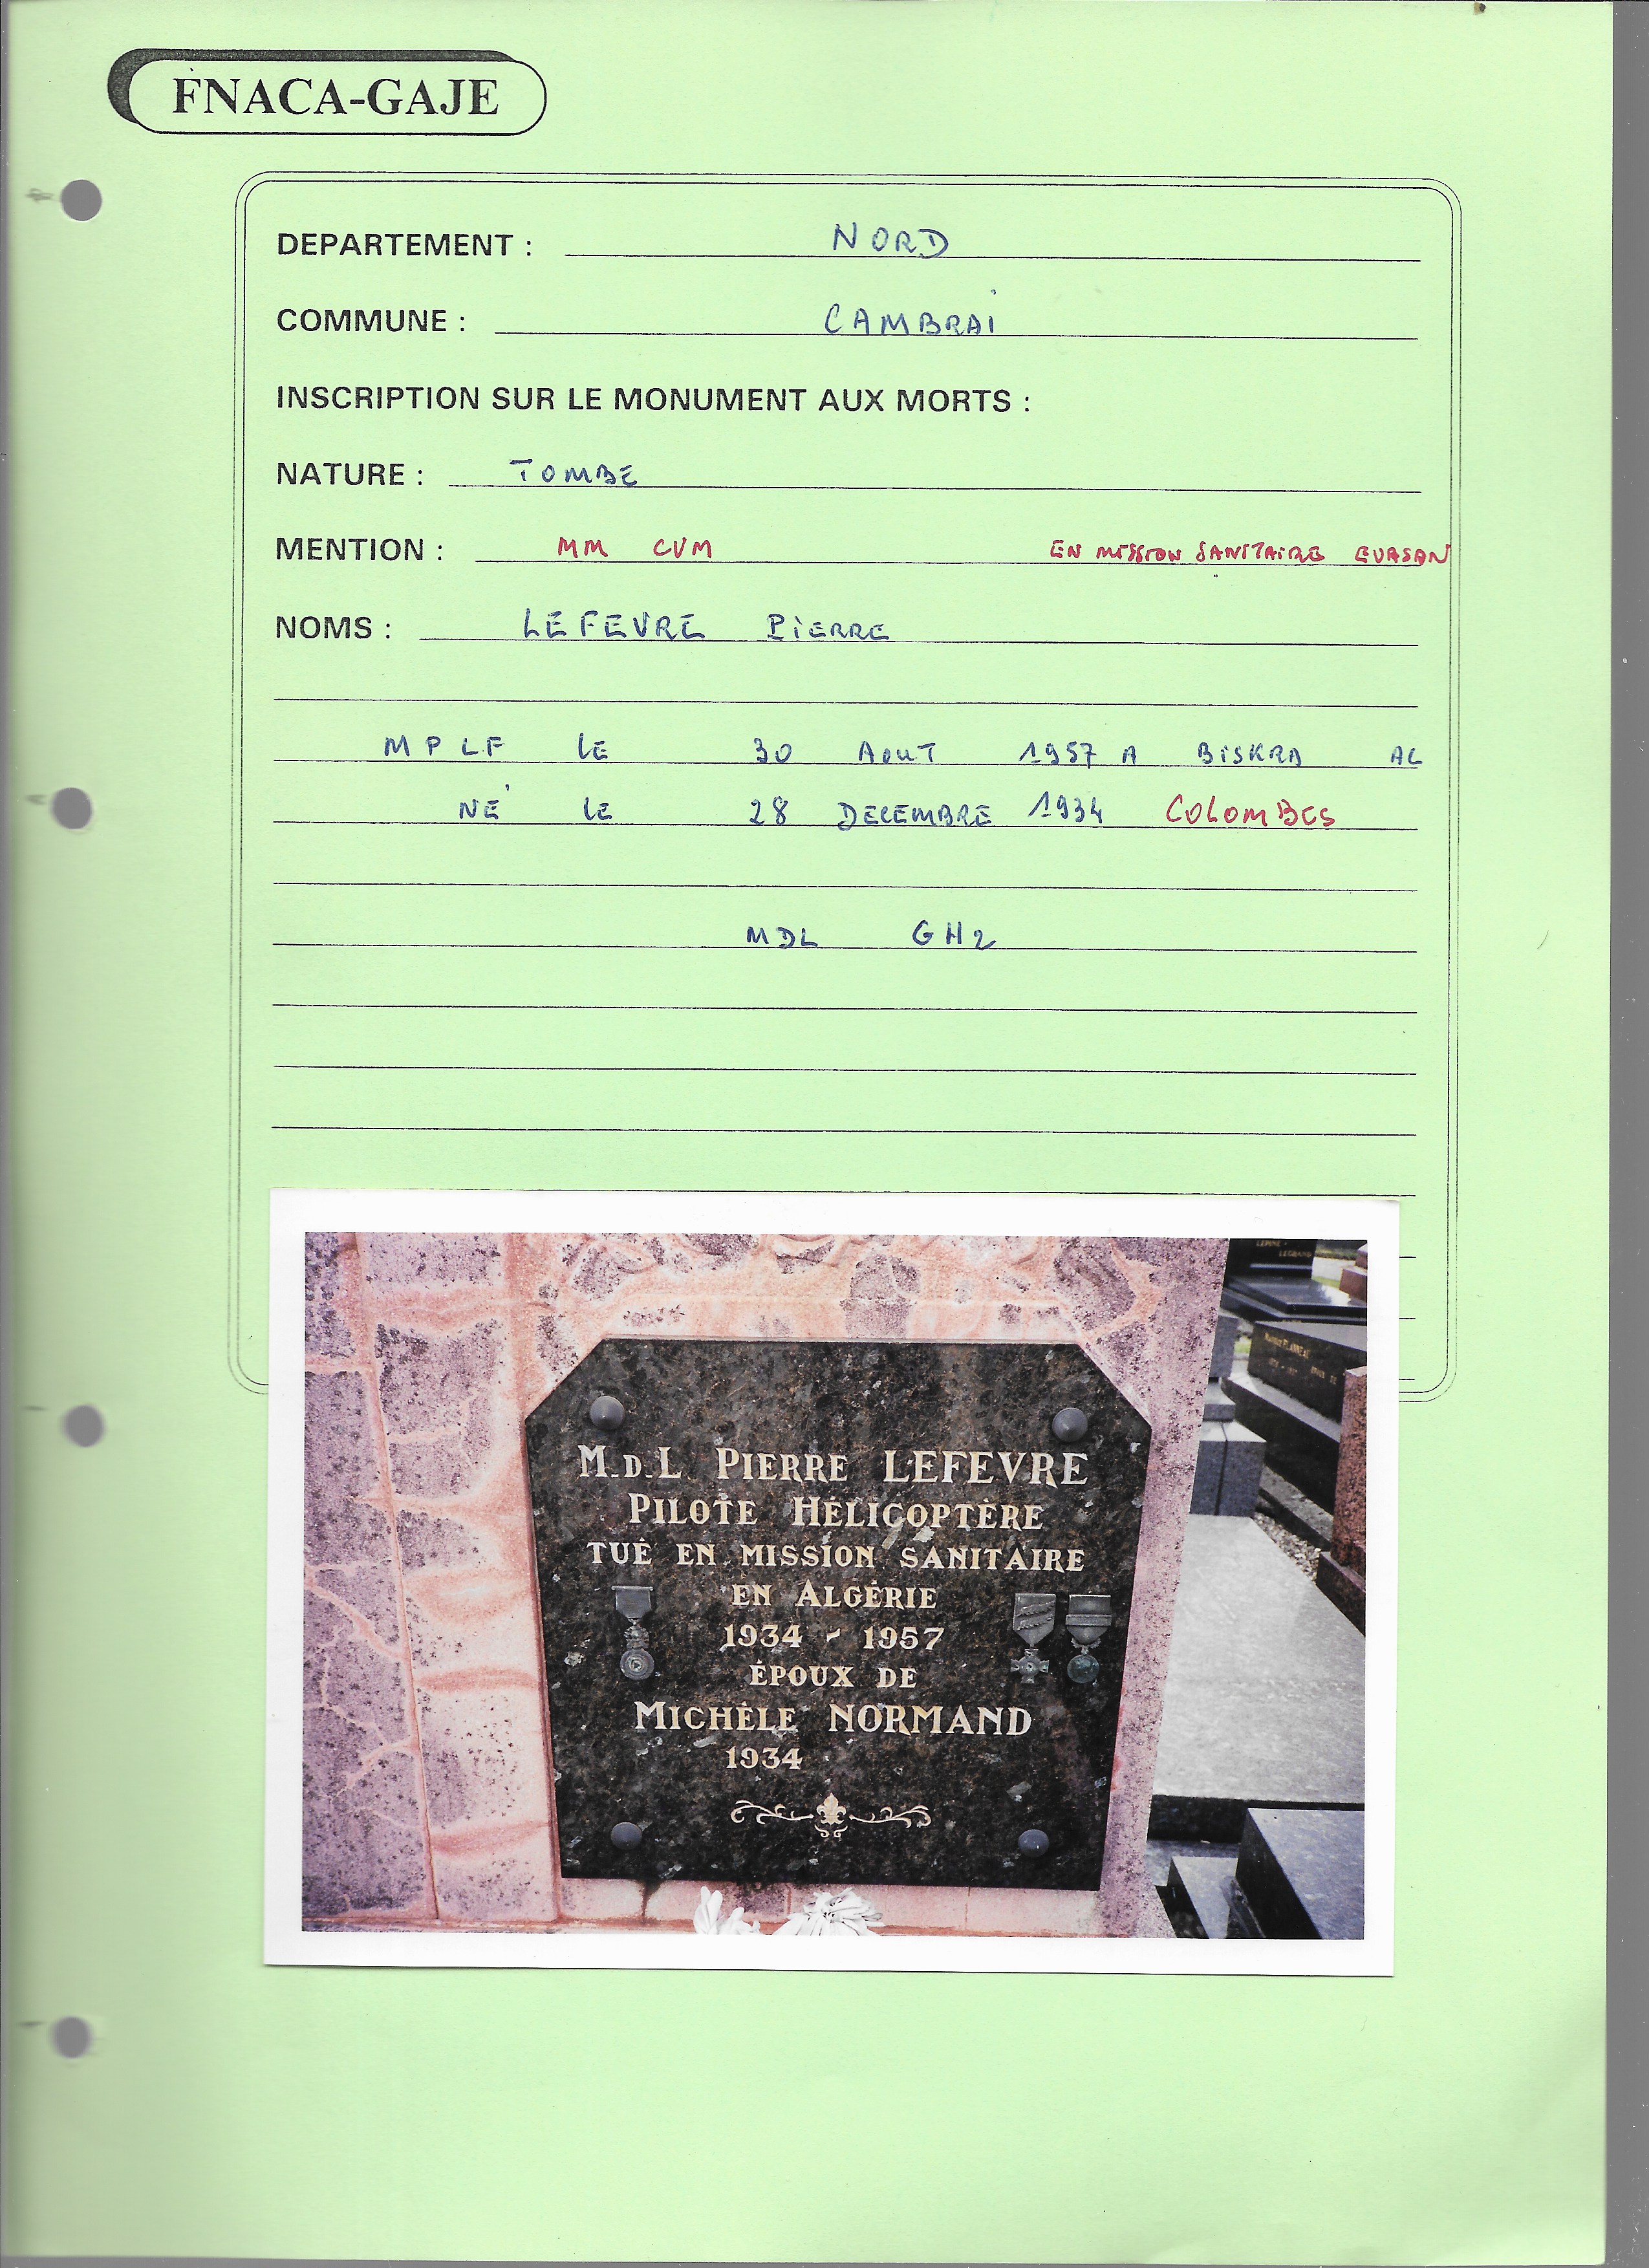 FNACA-GAJE
DEPARTEMENT : NORD
COMMUNE : CAMBRAI
INSCRIPTION SUR LE MONUMENT AUX MORTS :
NATURE : TOMBE
MENTION : MM CVM EN MISSION SANITAIRE EVASAN
NOMS : LEFEVRE PIERRE
MPLF LE 30 AOUT 1957 A BISKRA AL
NÉ LE 28 DECEMBRE 1934 COLOMBES
MDL GH2
M.D.L PIERRE LEFEVRE
PILOTE HÉLICOPTÈRE
TUÉ EN MISSION SANITAIRE
EN ALGÉRIE
1934 - 1957
ÉPOUX DE
MICHÈLE NORMAND
1934